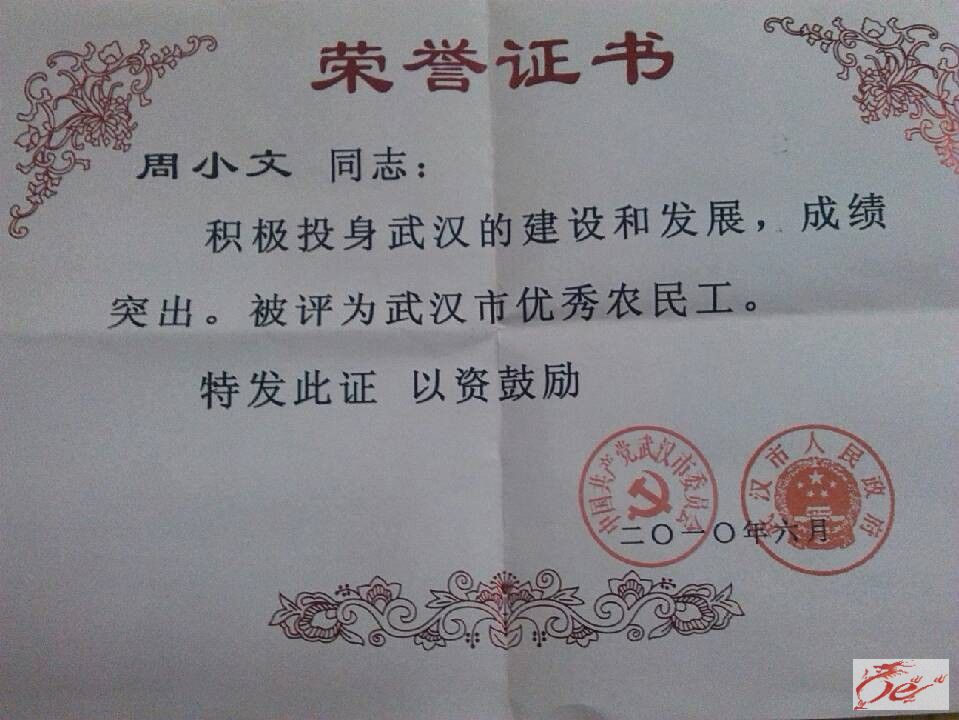 荣誉证书
周小文 同志：
积极投身武汉的建设和发展，成绩
突出。被评为武汉市优秀农民工。
特发此证 以资鼓励
中国共产党武汉市委员会
武汉市人民政府
二〇一〇年六月